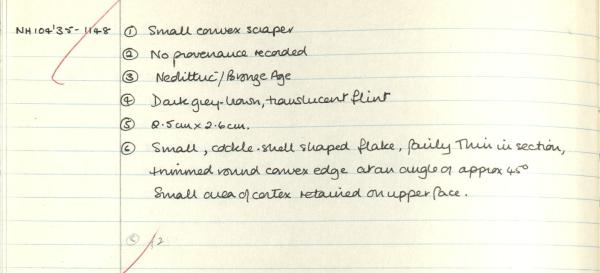 NH 104'35-1148 ① Small convex scraper
② No provenance recorded
③ Neolithic/Bronze Age
④ Dark grey-brown, translucent flint
⑤ 2.5cm x 2.6cm.
⑥ Small, cockle-shell shaped flake, fairly Thin in section,
trimmed round convex edge at an angle of approx 45°
Small area of cortex retained on upper face.